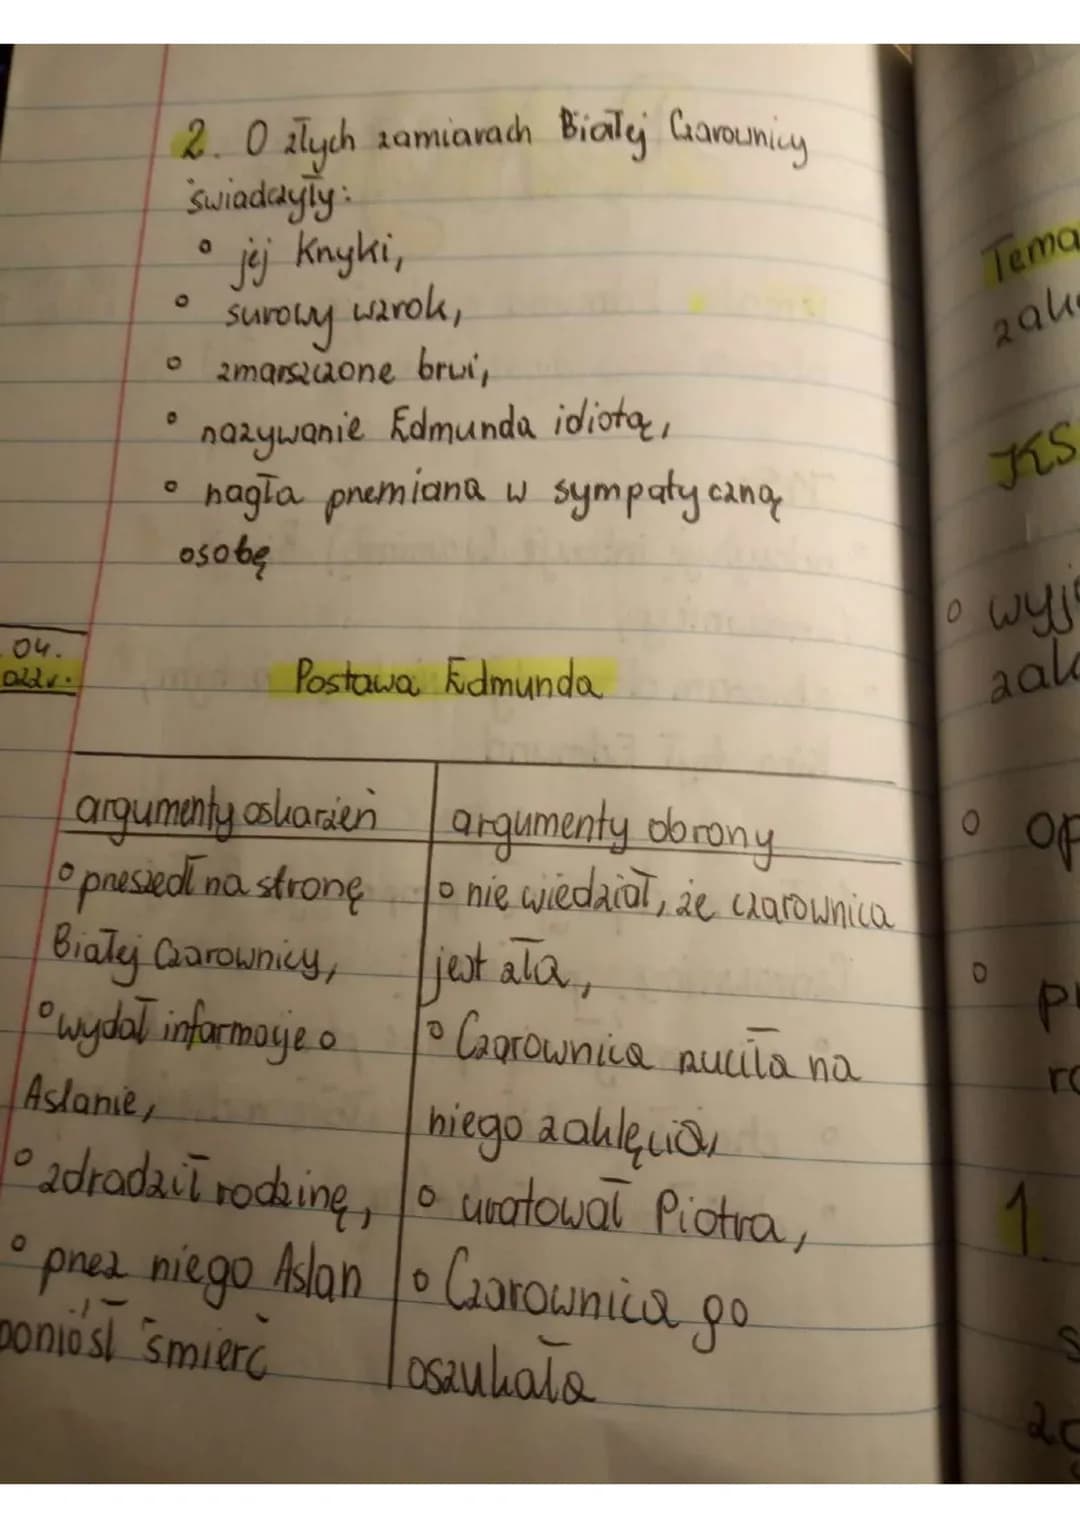 2. O złych zamiarach Białej Czarownicy
świadczyły:
° jej Krzyki,
° surowy wzrok,
° zmarszczone brwi,
° nazywanie Edmunda idiotą,
° nagła przemiana w sympatyczną
osobę
04.
022r.
Postawa Edmunda
argumenty oskarżeń
° przeszedł na stronę
Białej Czarownicy,
° wydał informacje o
Aslanie,
° zdradził rodzinę,
° przez niego Aslan
poniósł śmierć
argumenty obrony
° nie wiedział, że czarownica
jest zła,
° Czarownica rzuciła na
niego zaklęcia,
° uratował Piotra,
° Czarownica go
oszukała
Tema
zak
° wyj
zak
° op
°
1.